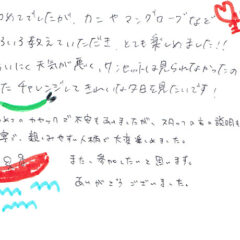 めてでしたが、カニやマングローブなど
ろいろ教えていただき、とても楽しめました!!
にく天気が悪く、サンセットは見られなかったの
たチャレンジしてきれいな夕日を見たいです!
カヤックで不安もありましたが、スタッフの方の説明も
寧で、親しみやすい人柄で大変楽しめました。
また、参加したいと思います。
ありがとうございました。